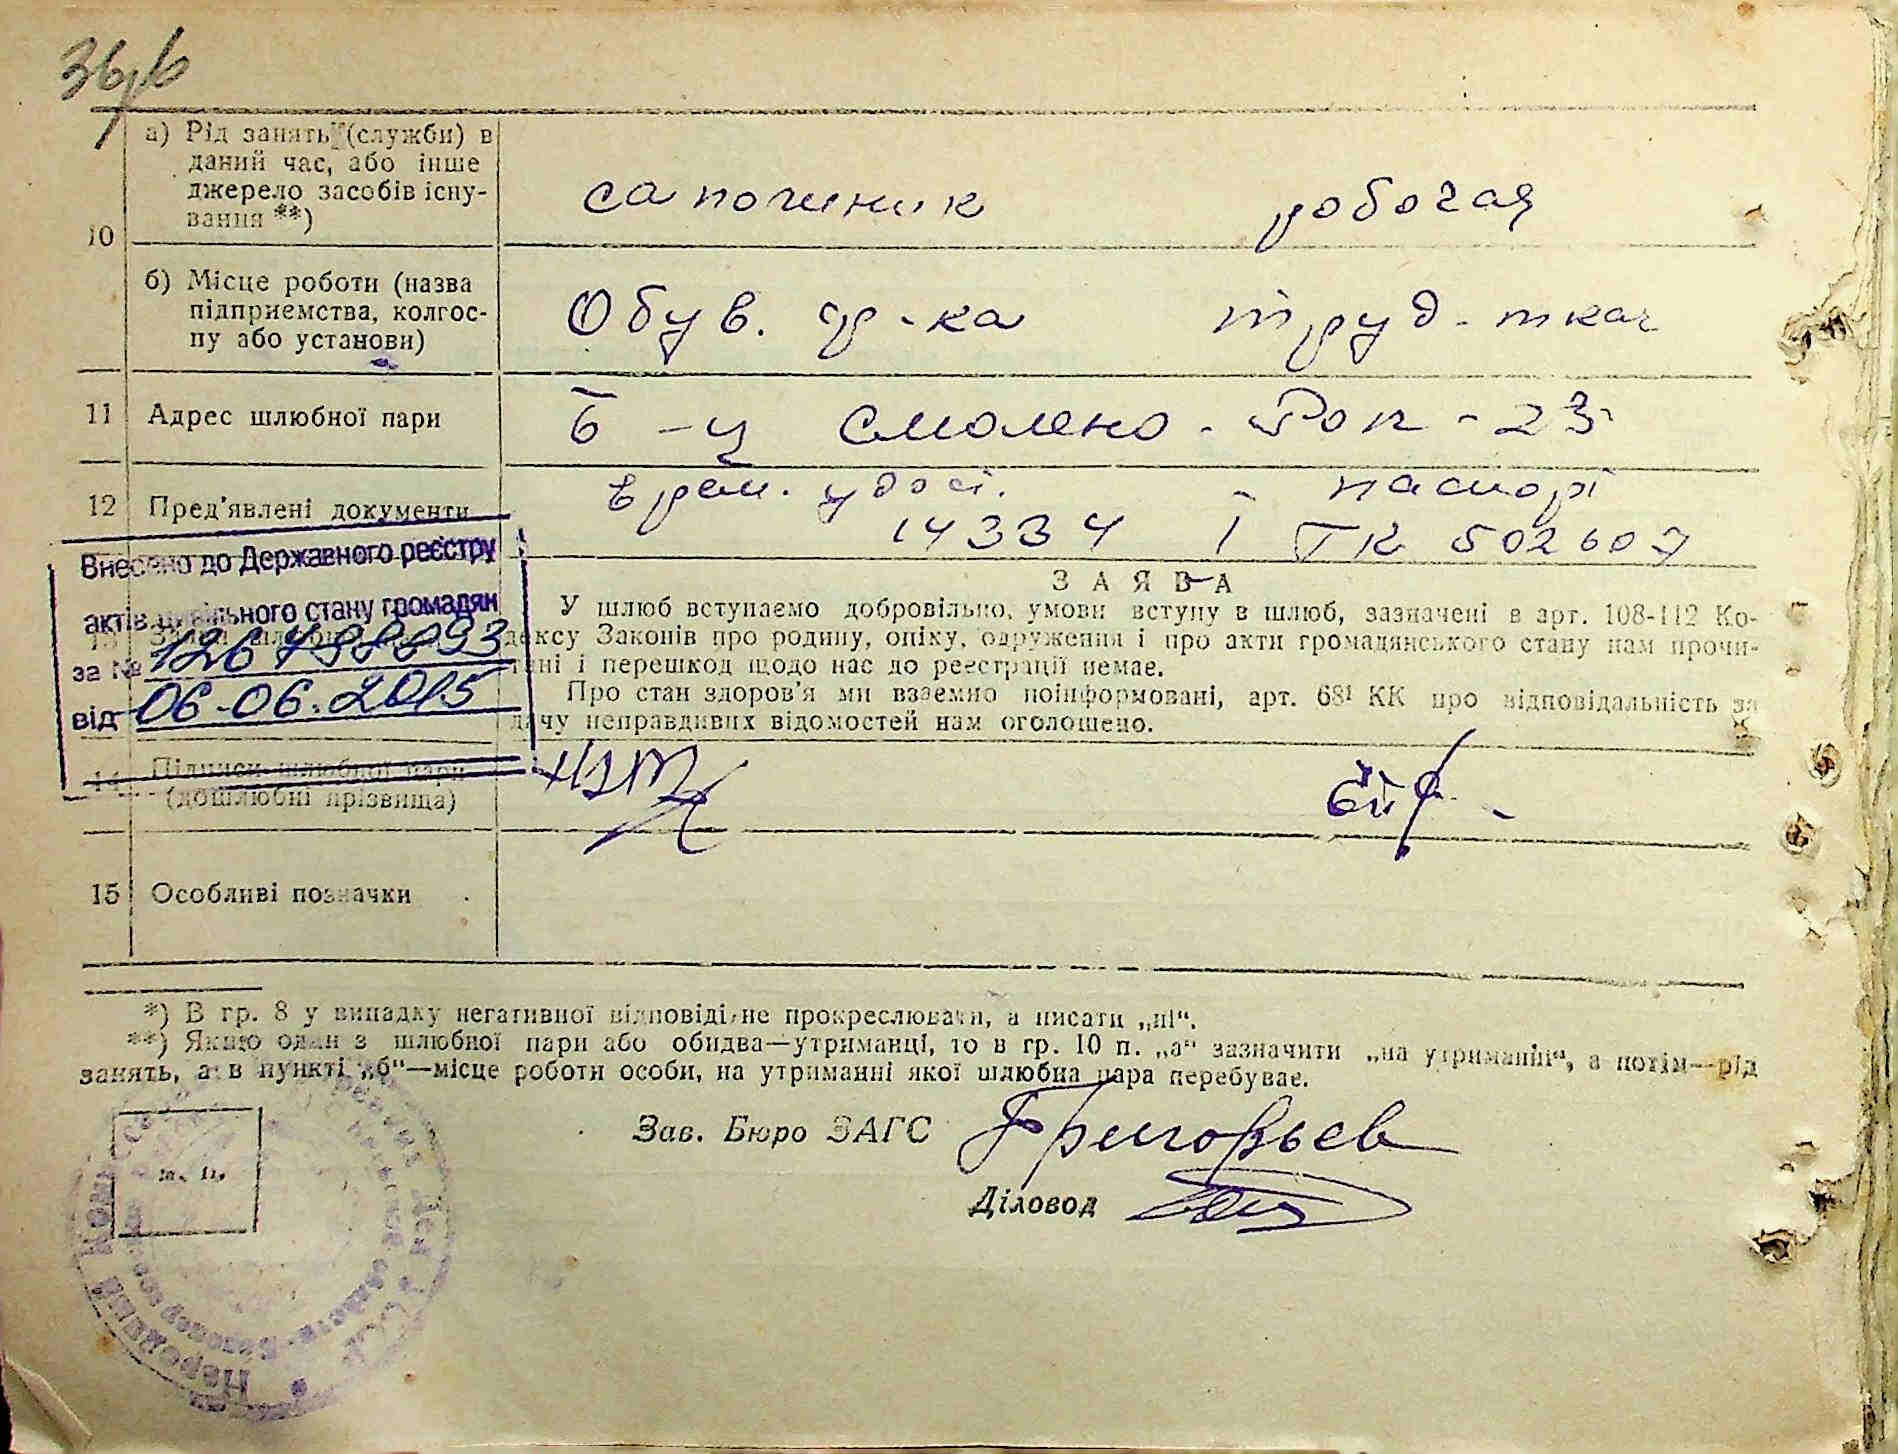 а) Рід занять (служби) в
даний час, або інше
джерело засобів існу-
вання **)
сапожник робочая
10
б) Місце роботи (назва
підприємства, колгос-
пу або установи)
Обув. ф-ка труд - ткач
11 Адрес шлюбної пари
Б-ц Смолено - 23
12 Пред'явлені документи
врем. удост. - паспорт
14334 ТК 502607
Внесено до Державного реєстру
актів цивільного стану громадян
за №
від 06-06.2015
ЗАЯВА
У шлюб вступаємо добровільно, умови вступу в шлюб, зазначені в арт. 108-112 Ко-
дексу Законів про родину, опіку, одруження і про акти громадянського стану нам прочи-
тані і перешкод щодо нас до реєстрації немає.
Про стан здоров'я ми взаємно поінформовані, арт. 68¹ КК про відповідальність за
дачу неправдивих відомостей нам оголошено.
14 Підписи шлюбної пари
(дошлюбні прізвища)
15 Особливі позначки
*) В гр. 8 у випадку негативної відповіді не прокреслювати, а писати „ні“.
**) Якщо один з шлюбної пари або обидва—утриманці, то в гр. 10 п. „а“ зазначити „на утриманні“, а потім—рід
занять, а в пункті „б“—місце роботи особи, на утриманні якої шлюбна пара перебуває.
м. п.
Зав. Бюро ЗАГС Григорьев
Діловод